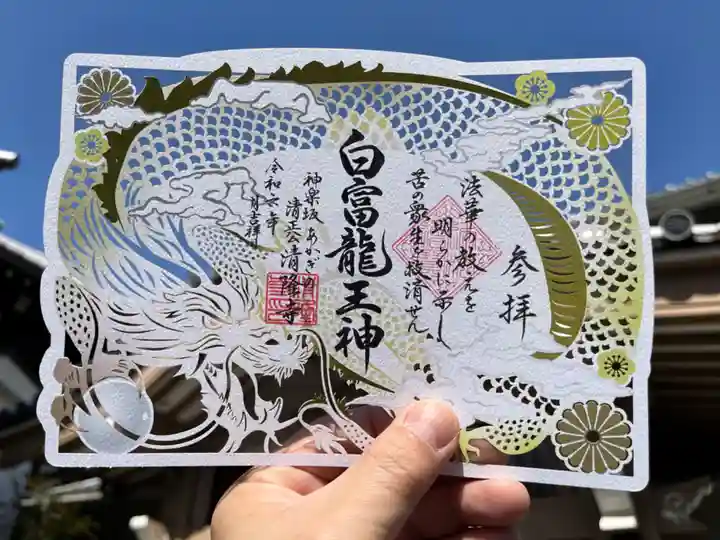 参拝
法華の教えを
明らかに示し
苦の衆生を救済せん
白富龍王神
神楽坂 あかぎの
清正公 清隆寺
令和六年
月吉祥